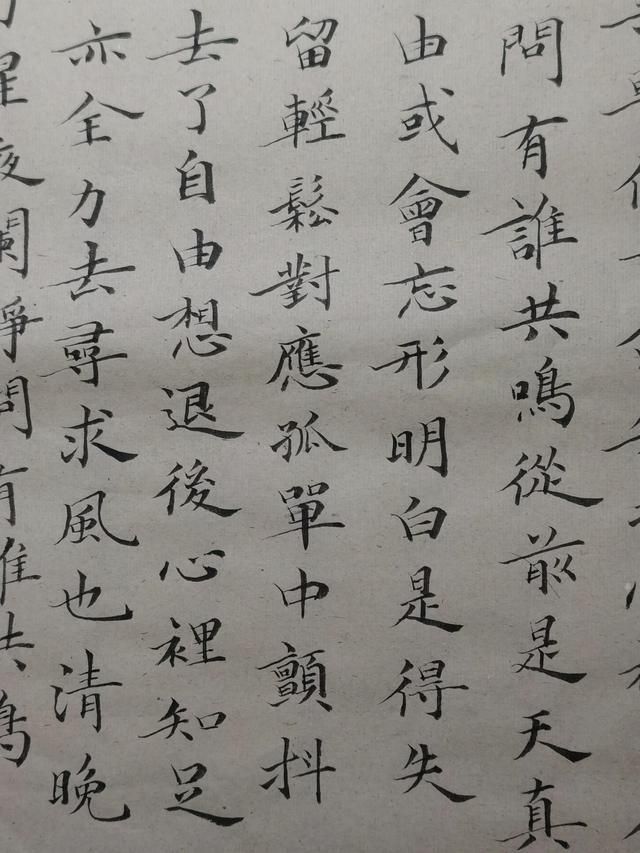 問有誰共鳴從前是天真
由或會忘形明白是得失
留輕鬆對應孤單中顫抖
去了自由想退後心裡知足
亦全力去尋求風也清晚
星夜闌靜問有誰共鳴